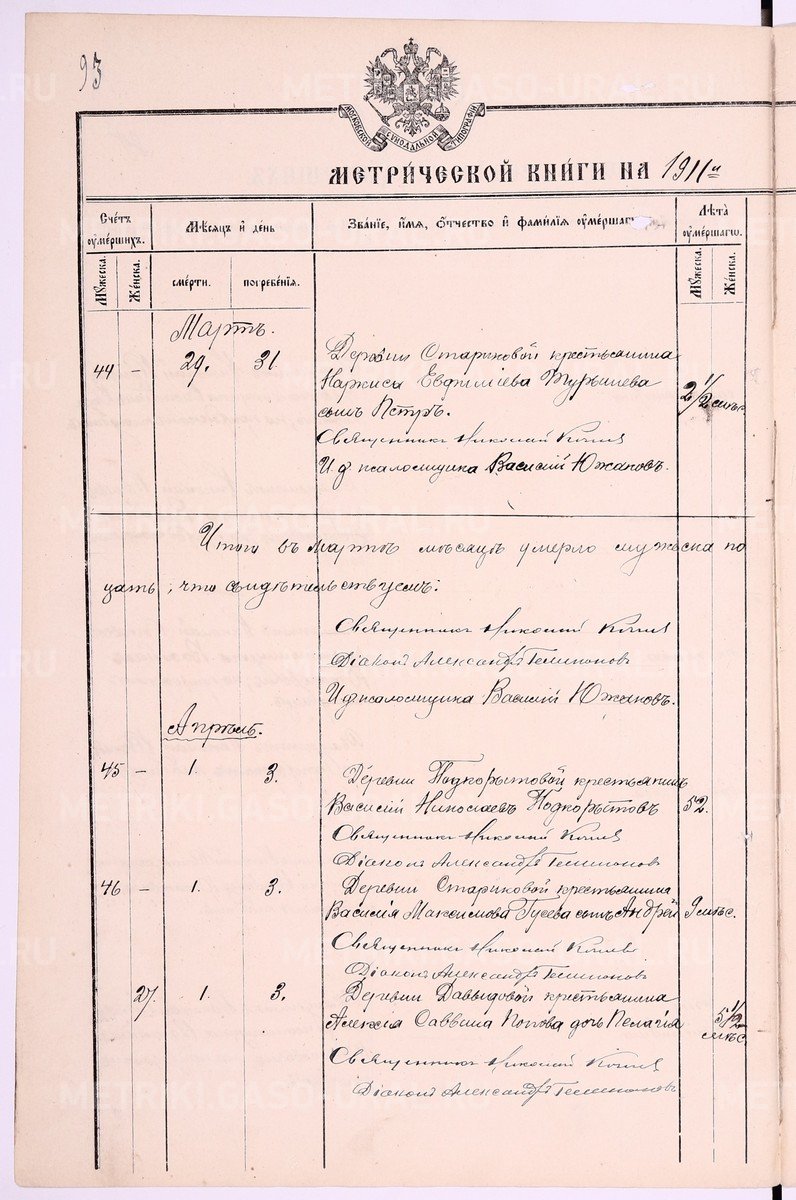 93
МОСКОВСКОЙ СѴНОДАЛЬНОЙ ТИПОГРАФІИ
МЕТРИ́ЧЕСКОЙ КНИ́ГИ НА 1911й
Сче́тъ оуме́ршихъ.
Мѣ́сяцъ и де́нь
Зва́нїе, и́мя, о́тчество и фами́лїя оуме́ршаго
Лѣ́та оуме́ршагѡ.
Мꙋ́жеска.
Же́нска.
сме́рти.
погребе́нїя.
Мꙋ́жеска.
Же́нска.
Мартъ.
44 - 29. 31. Деревни Стариковой крестьянина
Наркиса Евфиміева Турышева
сынъ Петръ. 2 1/2 мѣс.
Священникъ Николай
И. д. псаломщика Василій Южаковъ.
Итого въ Мартѣ мѣсяцѣ умерло мужеска по
, что свидѣтельствуемъ:
Священникъ Николай
Діаконъ Александръ
И. д. псаломщика Василій Южаковъ.
Апрѣль.
45 - 1. 3. Деревни Подкорытовой крестьянинъ
Василій Николаевъ Подкорытовъ 52.
Священникъ Николай
Діаконъ Александръ
46 - 1. 3. Деревни Стариковой крестьянина
Василія Максимова Гусева сынъ Андрей 9 мѣс.
Священникъ Николай
Діаконъ Александръ
27. 1. 3. Деревни Давыдовой крестьянина
Алексія Саввина Попова дочь Пелагія 5 1/2 мѣс.
Священникъ Николай
Діаконъ Александръ